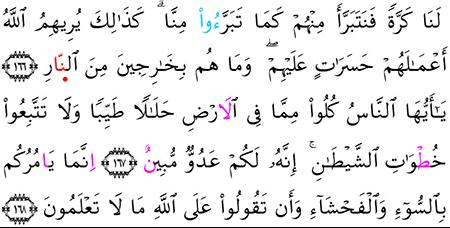 لَنَا كَرَّةً فَنَتَبَرَّأَ مِنْهُمْ كَمَا تَبَرَّءُواْ مِنَّا ۗ كَذَٰلِكَ يُرِيهِمُ ٱللَّهُ
أَعْمَٰلَهُمْ حَسَرَٰتٍ عَلَيْهِمْ ۖ وَمَا هُم بِخَٰرِجِينَ مِنَ ٱلنَّارِ ١٦٦
يَٰٓأَيُّهَا ٱلنَّاسُ كُلُواْ مِمَّا فِى ٱلَارْضِ حَلَٰلًا طَيِّبًا وَلَا تَتَّبِعُواْ
خُطْوَٰتِ ٱلشَّيْطَٰنِ ۚ إِنَّهُۥ لَكُمْ عَدُوٌّ مُّبِينٌ ١٦٧ اِنَّمَا يَامُرُكُم
بِٱلسُّوٓءِ وَٱلْفَحْشَآءِ وَأَن تَقُولُواْ عَلَى ٱللَّهِ مَا لَا تَعْلَمُونَ ١٦٨